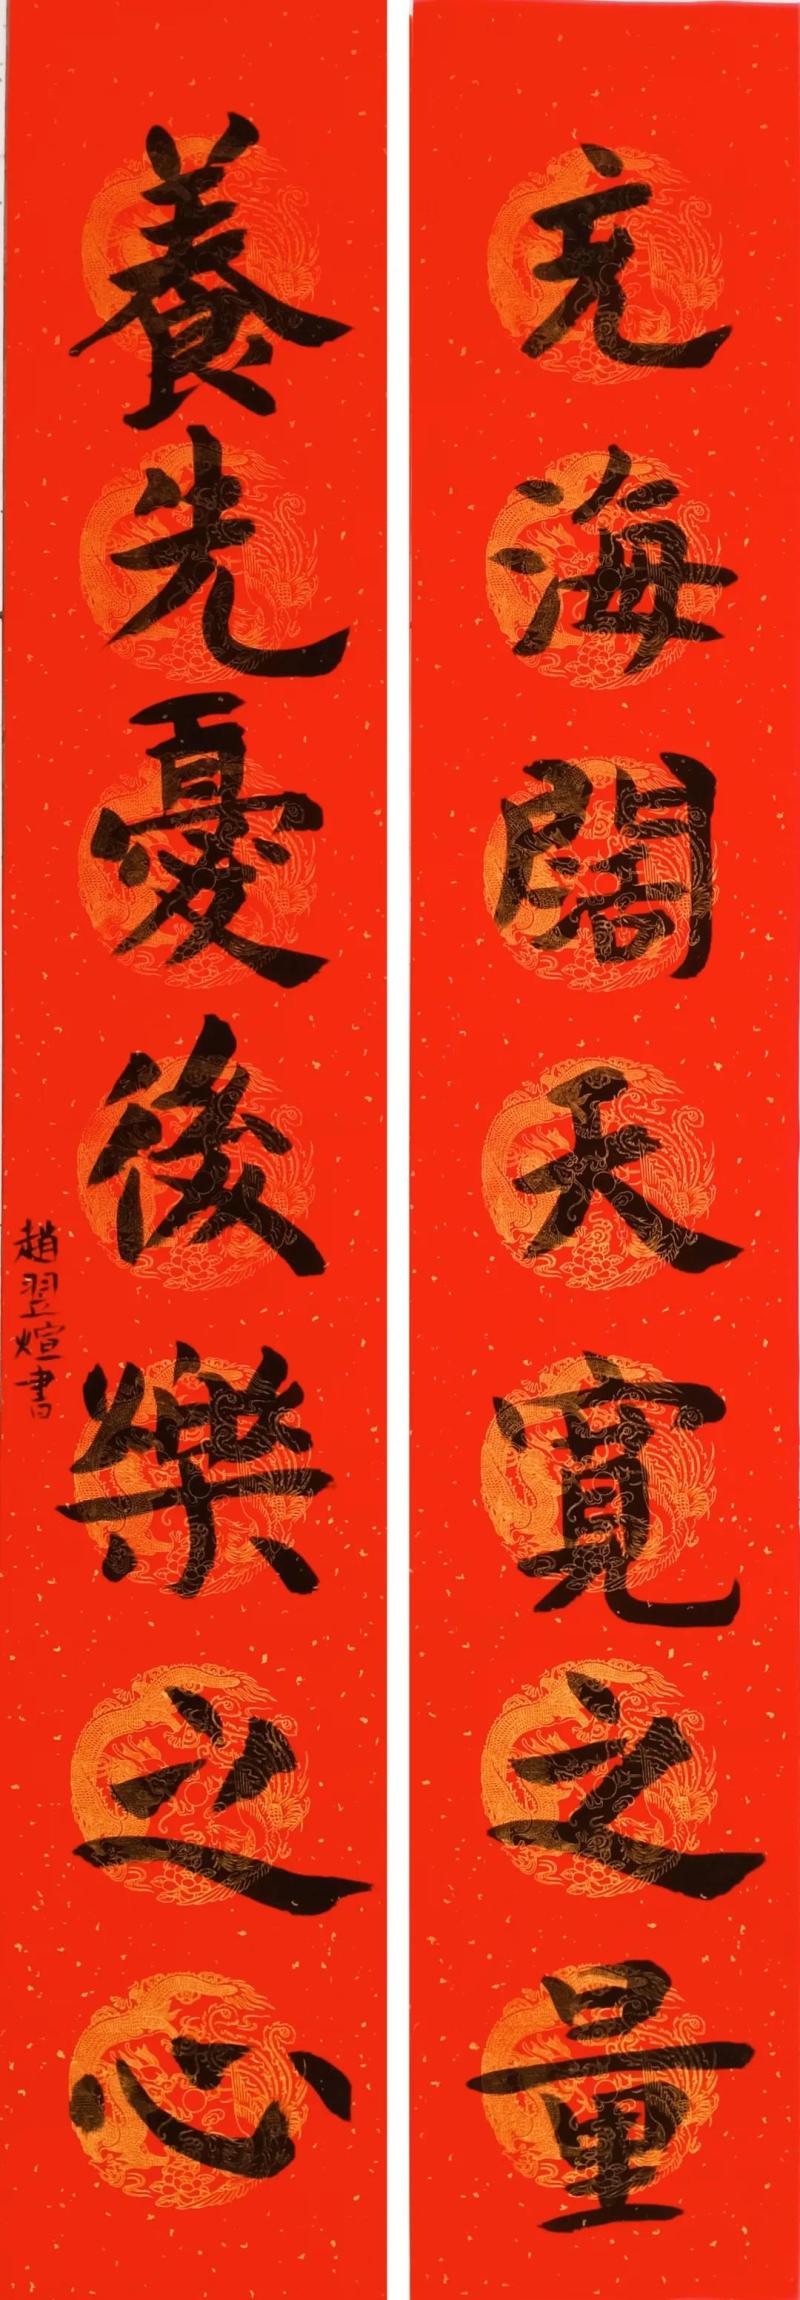 充海闊天寬之量
養先憂後樂之心
趙翌煊書